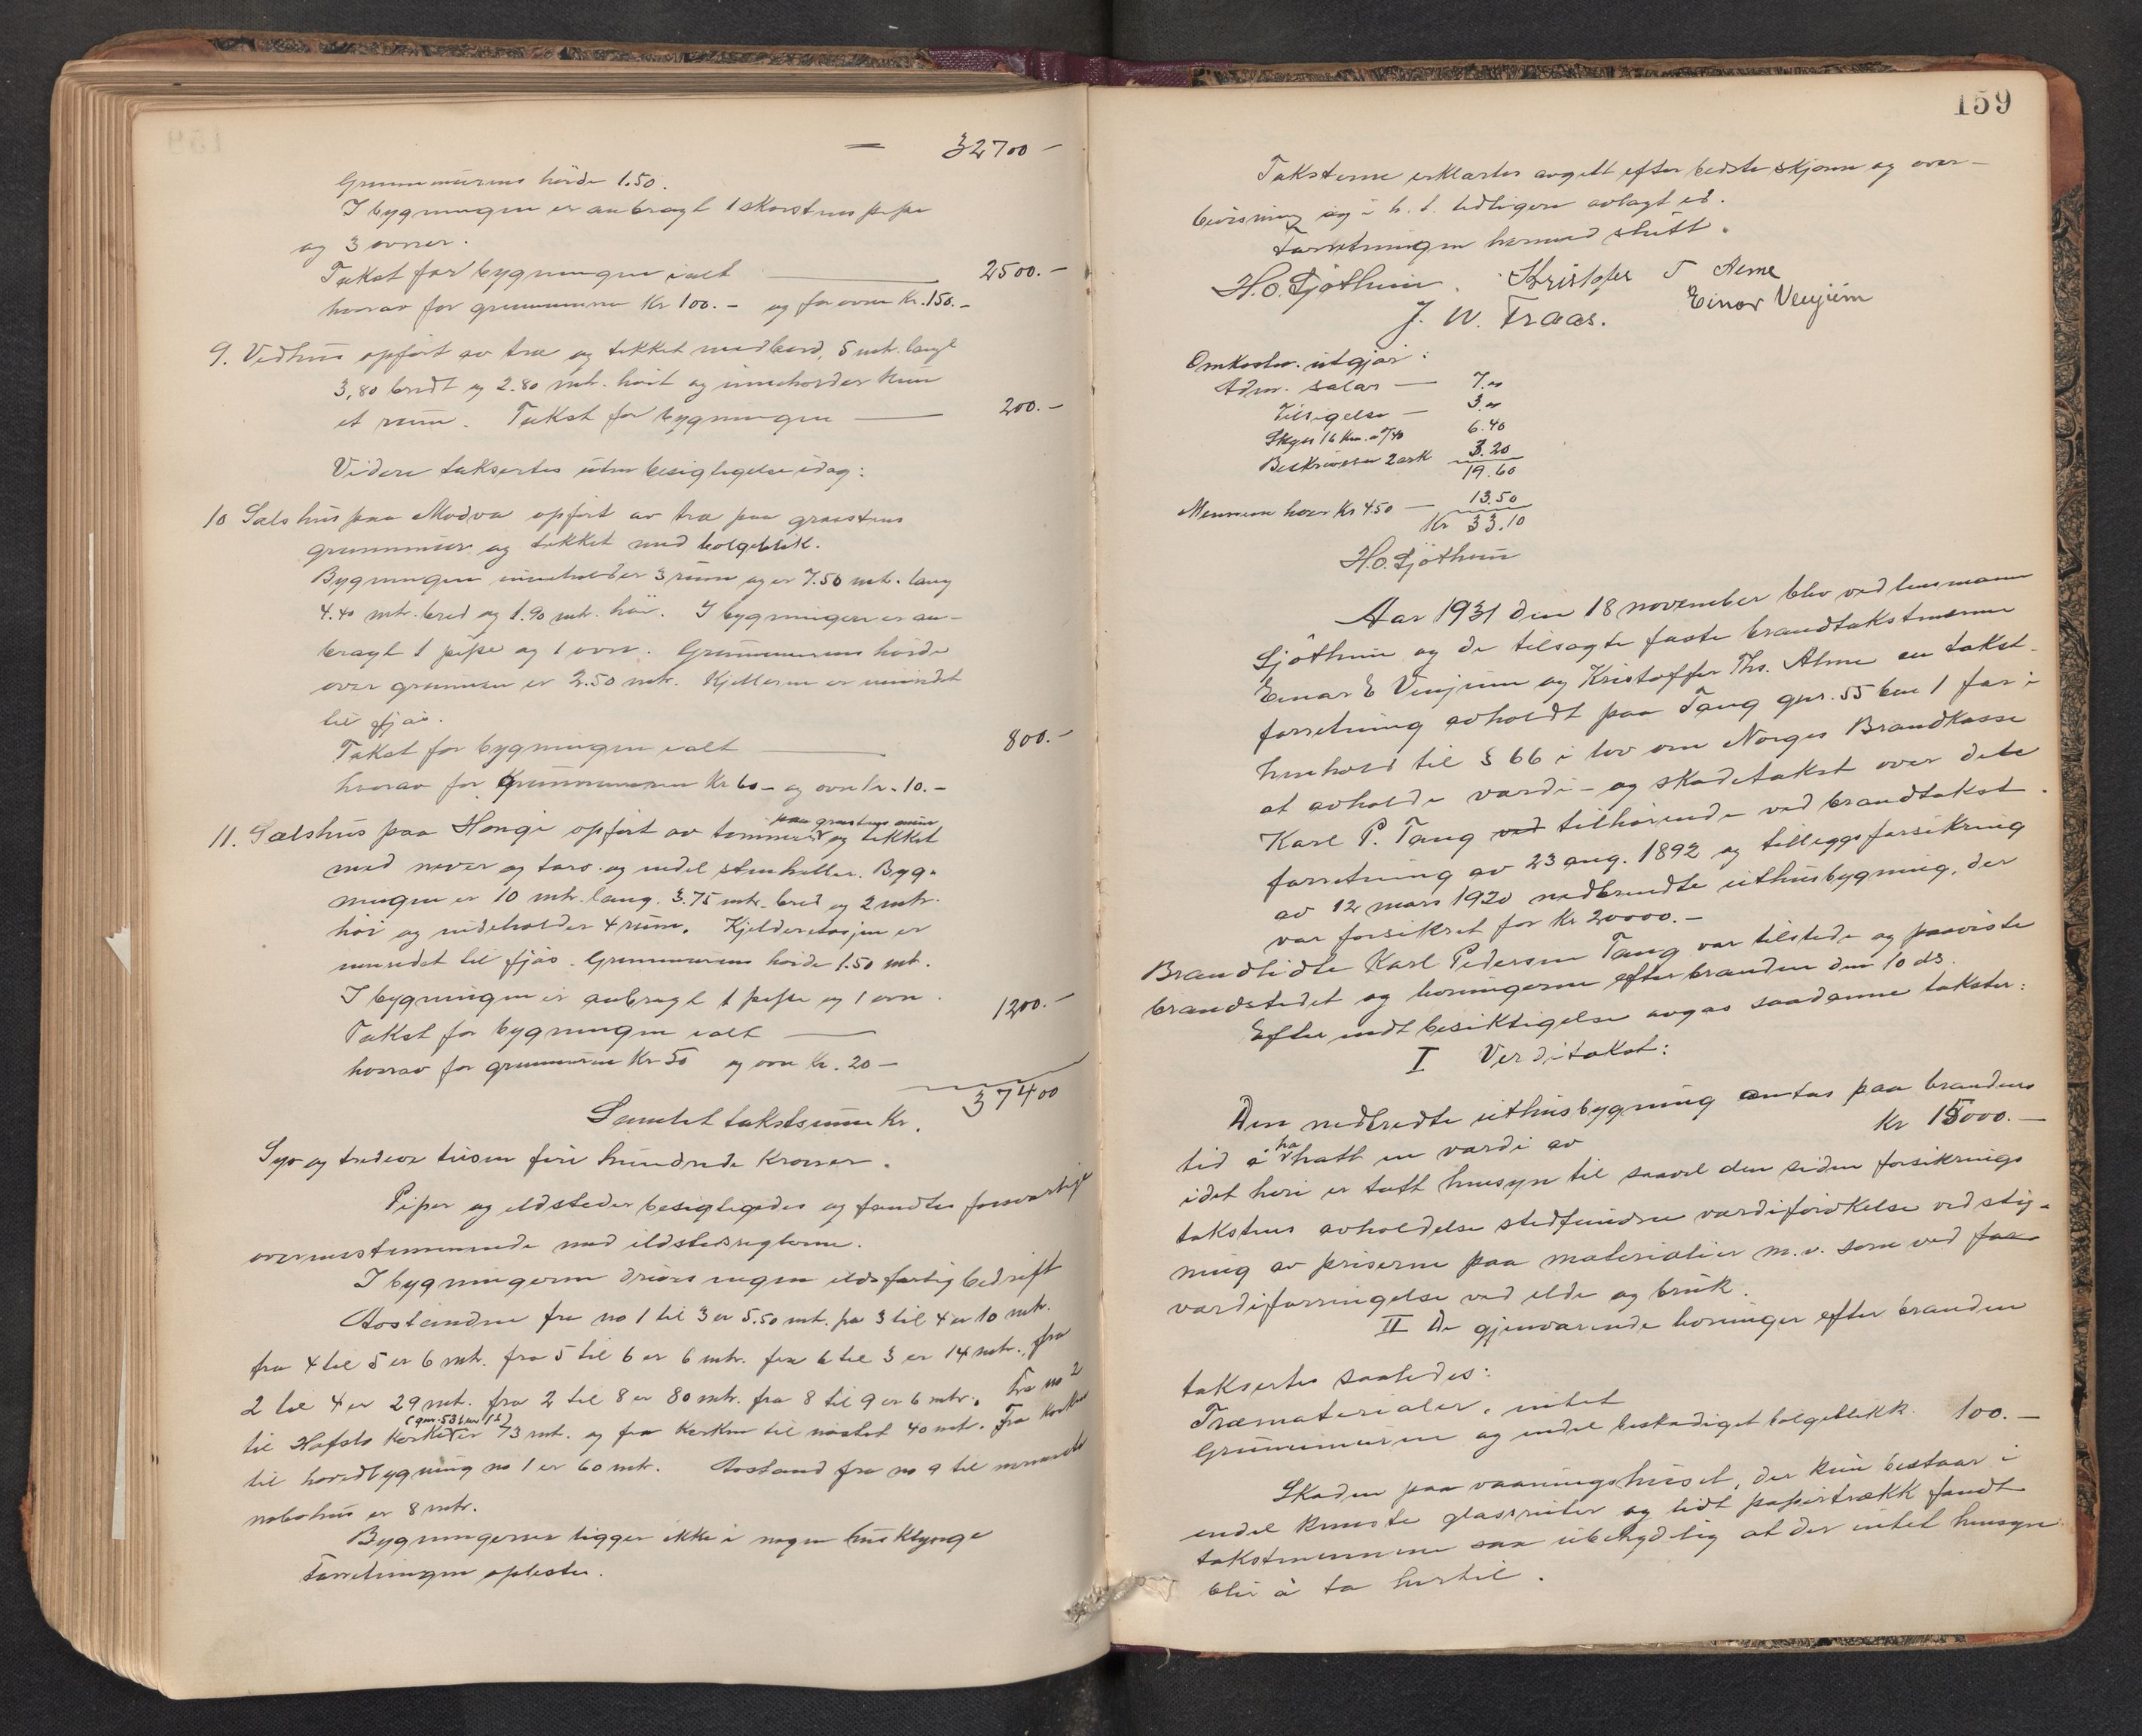 — 32700 –
Grunnmurens höide 1.50.
I bygningen er anbragt 1 skorstens pipe
og 3 ovner.
Takst for bygningen ialt — 2500.–
hvorav for grunnmuren Kr 100.– og for ovne Kr. 150.–
9. Vedhus opfört av træ og tekket med bord, 5 mtr. langt
3,80 bredt og 2.80 mtr. höit og inneholder kun
et rum. Takst for bygningen — 200.–
Videre taksertes uten besigtigelse idag:
10 Sæls hus paa Modva opfört av træ paa graastens
grunnmur og tekket med bolgeblik.
Bygningen inneholder 3 rum og er 7.50 mtr. lang
4.40 mtr. bred og 1.90 mtr. höi. I bygningen er an-
bragt 1 pipe og 1 ovn. Grunnmurens höide
over grunnen er 2.50 mtr. Kjelleren er innredet
til fjös.
Takst for bygningen ialt — 800.–
hvorav for Grunnmuren Kr 60– og ovn kr. 10.–
11. Sælshus paa Hongi opfört av tömmer paa graastens mur og tekket
med never og torv. og endel stenheller. Byg-
ningen er 10 mtr. lang. 3.75 mtr. bred og 2 mtr.
höi og indeholder 4 rum. Kjelderetasjen er
innredet til fjös. Grunnmurens höide 1.50 mtr.
I bygningen er anbragt 1 pipe og 1 ovn.
Takst for bygningen ialt — 1200.–
hvorav for grunnmuren Kr 50 og ovn Kr. 20 –
Samlet takstsum Kr. 37400
Syv og tredeve tusen fire hundrede Kroner.
Piper og ildsteder besigtigedes og fandtes forsvarlige
overensstemmende med ildstedsreglerne.
I bygningerne drives ingen ildsfarlig bedrift
Avstandene fra no 1 til 3 er 5.50 mtr. fra 3 til 4 er 10 mtr.
fra 4 til 5 er 6 mtr. fra 5 til 6 er 6 mtr. fra 6 til 3 er 14 mtr. fra
2 til 4 er 29 mtr. fra 2 til 8 er 80 mtr. fra 8 til 9 er 6 mtr. Fra no 2
til Hafslo Kirke (gnr. 53 bnr 12) er 73 mtr. og fra Kirken til nöstet 40 mtr. Fra Kirken
til hovedbygning no 1 er 60 mtr. Avstand fra no 9 til nermeste
nabohus er 8 mtr.
Bygningerne ligger ikke i nogen husklynge
Forretningen oplestes.
159
Taksterne erklærtes avgitt efter bedste skjönn og over-
bevisning og i h. t. tidligere avlagt ed.
Forretningen hermed slutt.
H.O. Sjöthun. Kristofer T Alme
J. W. Traas. Einar Venjum
Omkostn. utgjör:
Adm. salær — 7.00
Tilsigelse — 3.00
Skyss 16 Km. a 0/40 6.40
Beskrivelse 2 ark 3.20
19.60
Mennene hver Kr 4.50 — 13.50
Kr 33.10
H.O. Sjöthun
Aar 1931 den 18 november blev ved lensmann
Sjöthun og de tilsagte faste brandtakstmenn
Einar E Venjum og Kristoffer Ths. Alme en takst-
forretning avholdt paa Tang gnr. 55 bnr 1 for i
henhold til § 66 i lov om Norges Brandkasse
at avholde værdi- og skadetakst over dete
Karl P. Tang ved tilhörende ved brandtakst-
forretning av 23 aug. 1892 og tilleggsforsikring
av 12 mars 1920 nedbrendte uthusbygning, der
var forsikret for Kr 20000.–
Brandlidte Karl Pedersen Tang var tilstede og paaviste
brandstedet og levningerne efter branden den 10 ds.
Efter endt besiktigelse avgas saadanne takster:
I Verditakst:
Den nedbrendte uthusbygning antas paa brandens
tid å ha hatt en værdi av Kr 15000.–
idet heri er tatt hensyn til saavel den siden forsikrings
takstens avholdelse stedfundne værdiforökelse ved stig-
ning av priserne paa materialier m.v. som ved for
værdiforringelse ved elde og bruk.
II De gjenværende levninger efter branden
taksertes saaledes:
Træmaterialer, intet
Grunnmuren og endel beskadiget bolgeblikk 100.–
Skaden paa vaaningshuset, der kun bestaar i
endel knuste glassruter og lidt papirtrækk fandt
takstmennene saa ubetydelig at der intet hensyn
blir å ta hertil.